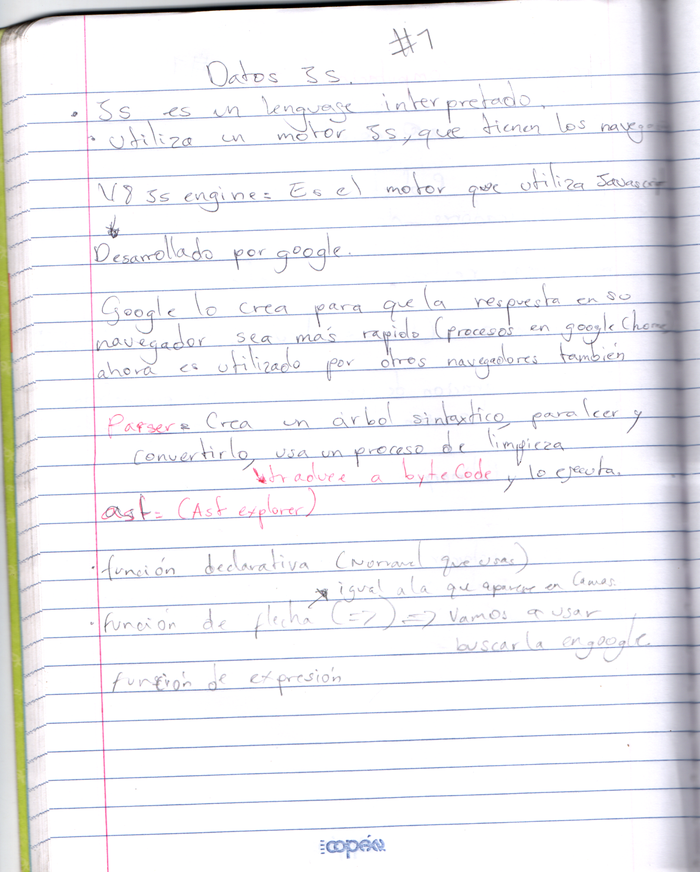 #1
Datos Js.
• Js es un lenguage interpretado.
• utiliza un motor Js, que tienen los naveg
V8 Js engine = Es el motor que utiliza Javascrip
Desarrollado por google.
Google lo crea para que la respuesta en su
navegador sea más rapido (procesos en google Chome
ahora es utilizado por otros navegadores también
Parser = Crea un árbol sintaxtico, para leer y
convertirlo, usa un proceso de limpieza
↳ traduce a byteCode y lo ejecuta.
ast = (Ast explorer)
• función declarativa (Normal que usas)
igual a la que aparece en
• función de flecha (=>) => Vamos a usar
buscarla en google.
función de expresión
copán